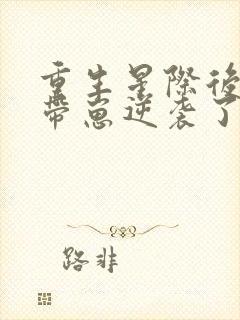 重生星際後
帶崽逆袭了
路非